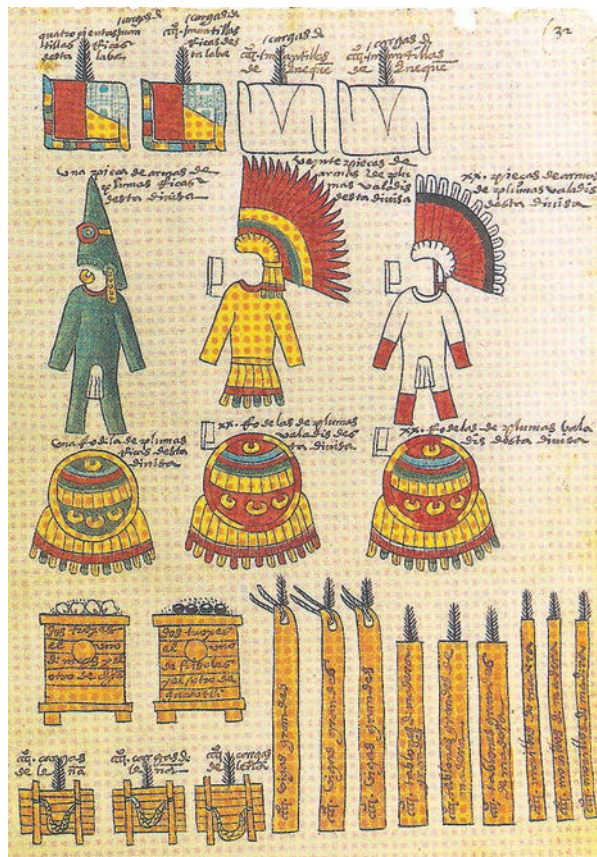 / cargas de
quatro çientas man
tillas rricas
desta labor
/ cargas de
mantillas
rricas des
ta labor
/ cargas de
mantillas
de eneque
/ cargas de
mantillas
de eneque
/ 32
Una pieça de armas de
plumas rricas
desta divisa
veynte pieças de
armas de plu
mas valadis
desta divisa
xx. pieças de armas
de plumas valadis
desta divisa
Una rodela de plumas
rricas desta
divisa
xx. rodelas de plumas
valadis des
ta divisa
xx. rodelas de plumas vala
dis desta divisa
dos trojes
el uno
de maiz y el
otro de chia
dos trojes
el uno
de frisoles
y el otro de
guautli
cargas
de leña
cargas de
leña
cargas
de leña
vigas grandes
vigas grandes
vigas grandes
tablones grandes
de madera
tablones grandes
de madera
tablones grandes
de madera
morillos de madera
morillos de madera
morillos de madera